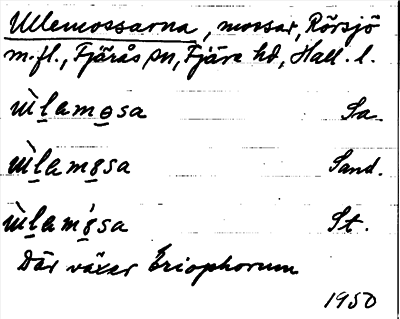 Ullemossarna, mossar, Rörsjö
m.fl., Fjärås sn, Fjäre hd, Hall. l.
ùlamosa Sa.
ùlamosa Sand.
ùlamosa St.
Där växer Eriophorum
1950